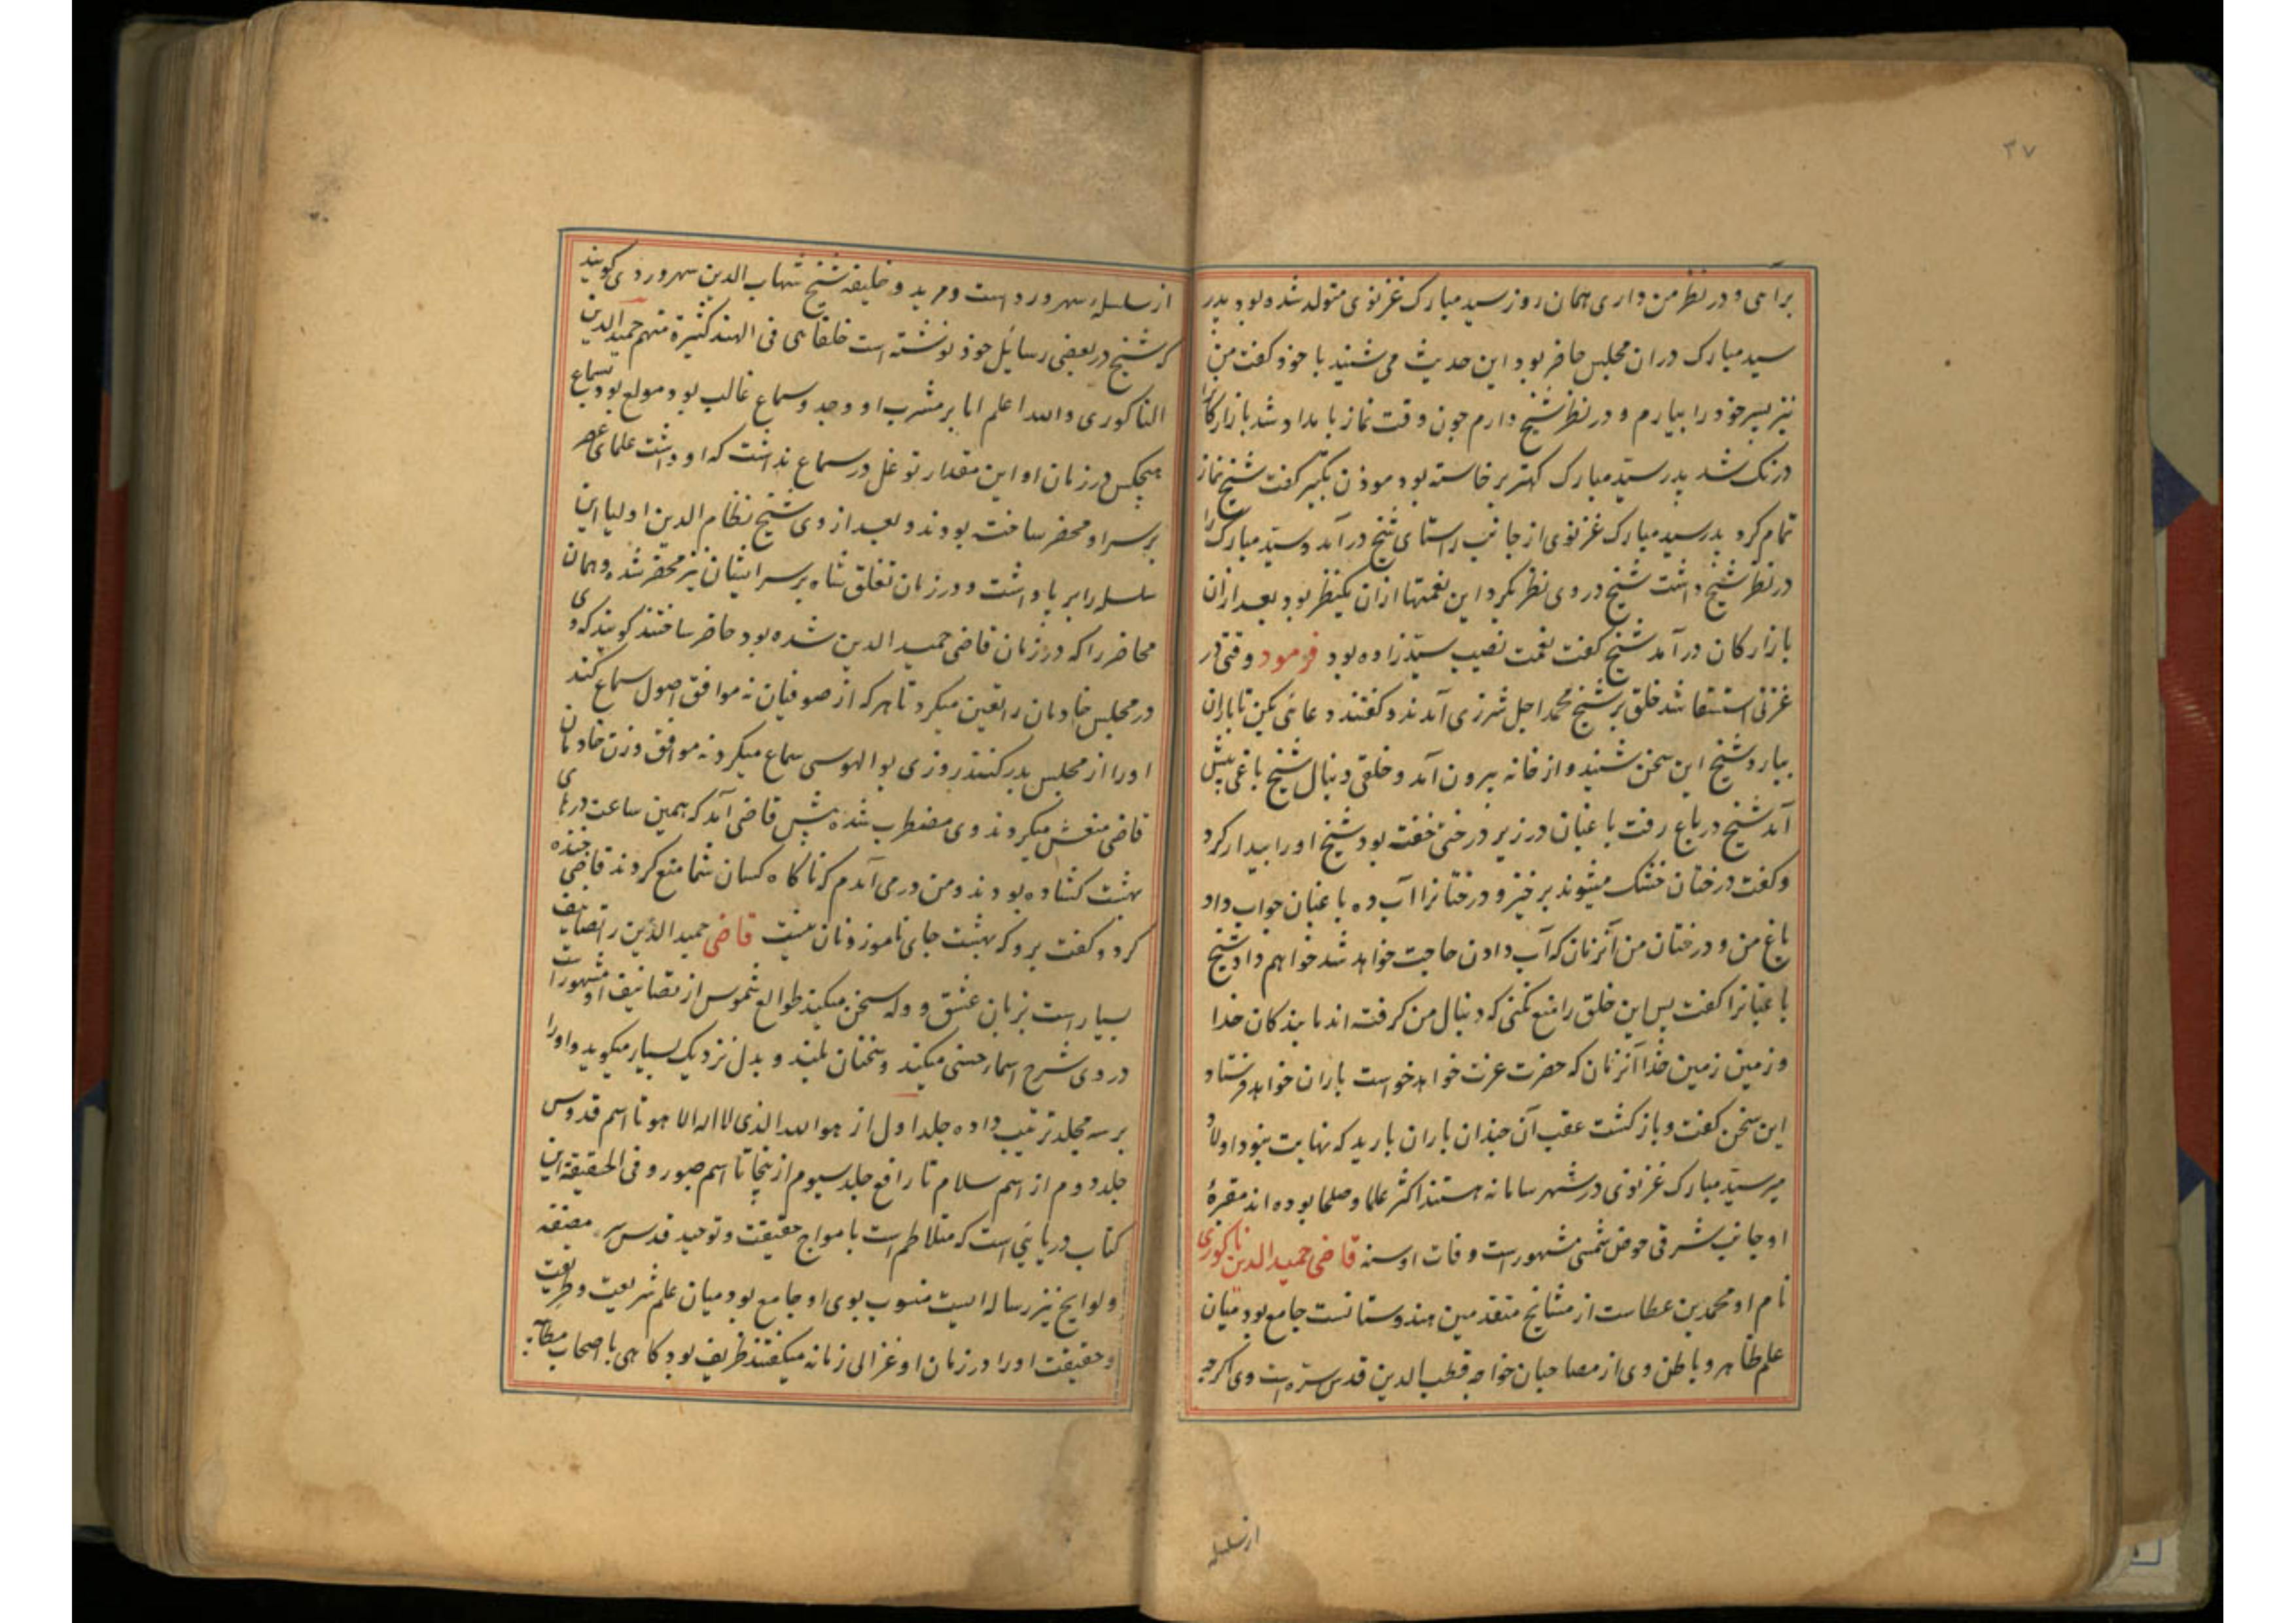 ۳۷
برآجی و در نظر من داری همان روز سید مبارک غزنوی متولد شده بود پدر
سید مبارک دران مجلس حاضر بود این حدیث می شنید با خود گفت من
نیز پسر خود را بیارم و در نظر شیخ دارم چون وقت نماز بامداد شد بازارکانرا
درنک شد پدر سید مبارک کهتر برخاسته بود موذن تکبیر کفت شیخ نماز
تمام کرد پدر سید مبارک غزنوی از جانب راستای شیخ در آمد و سید مبارک را
در نظر شیخ داشت شیخ در وی نظر کرد این نعمتها ازان یکنظر بود بعد ازان
بازارکان در آمد شیخ کفت نعمت نصیب سید زاده بود فرمود وقتی در
غزنی استسقا شد خلق بر شیخ محمد اجل شرزی آمدند و کفتند دعائی بکن تا باران
ببارد شیخ این سخن شنید و از خانه بیرون آمد و خلقی دنبال شیخ باغی پیش
آمد شیخ در باغ رفت باغبان در زیر درختی خفته بود شیخ او را بیدار کرد
و کفت درختان خشک میشوند برخیز و درختانرا آب ده باغبان جواب داد
باغ من و درختان من آنزمان که آب دادن حاجت خواهد شد خواهم داد شیخ
باغبانرا کفت پس این خلق را منع نکنی که دنبال من کرفته اند ما بندکان خدا
و زمین زمین خدا آنزمان که حضرت عزت خواهد خواست باران خواهد فرستاد
این سخن کفت و باز کشت عقب آن چندان باران بارید که نهایت نبود اولاد
میر سید مبارک غزنوی در شهر سامانه هستند اکثر علما و صلحا بوده اند مقبرهٔ
او جانب شرقی حوض شمسی مشهورست وفات او سنه قاضی حمید الدین ناکوری
نام او محمد بن عطاست از مشائخ متقدمین هندوستانست جامع بود میان
علم ظاهر و باطن وی از مصاحبان خواجه قطب الدین قدس سره است وی اکرچه
از سلسله
از سلسلهٔ سهرورد است و مرید و خلیفه شیخ شهاب الدین سهروردی کویند
که شیخ در بعضی رسائل خود نوشته است خلفائی فی الهند کثیرة منهم حمید الدین
الناکوری والله اعلم اما بر مشرب او وجد و سماع غالب بود مولع بود بسماع
هیچکس در زمان او این مقدار توغل در سماع نداشت که او داشت علمای عصر
بر سر او محضر ساخته بودند و بعد از وی شیخ نظام الدین اولیا این
سلسله را بر پا داشت و در زمان تغلق شاه بر سر ایشان نیز محضر شده و همان
محاضر را که در زمان قاضی حمید الدین شده بود حاضر ساختند کویند که وی
در مجلس خادمان را تعین میکرد تا هر که از صوفیان نه موافق اصول سماع کند
او را از مجلس بدر کنند روزی بوالهوسی سماع میکرد نه موافق وزن خادمان
قاضی منعش میکردند وی مضطرب شده پیش قاضی آمد که همین ساعت درهای
بهشت کشاده بودند و من در می آمدم که ناکاه کسان شما منع کردند قاضی خنده
کرد و کفت برو که بهشت جای ناموزونان نیست قاضی حمید الدین را تصانیف
بسیار است بزبان عشق و وله سخن میکند طوالع شموس از تصانیف او مشهور است
در وی شرح اسماء حسنی میکند و سخنان بلند و بدل نزدیک بسیار میکوید و او را
بر سه مجلد ترتیب داده جلد اول از هو الله الذی لا اله الا هو تا اسم قدوس
جلد دوم از اسم سلام تا رافع جلد سیوم از ینجا تا اسم صبور و فی الحقیقة این
کتاب دریائی است که متلاطم است بامواج حقیقت و توحید قدس سر مصنفه
و لوایح نیز رساله ایست منسوب بوی او جامع بود میان علم شریعت و طریقت
و حقیقت او را در زمان او غزالی زمانه میکفتند ظریف بود کاهی با اصحاب مطایبه